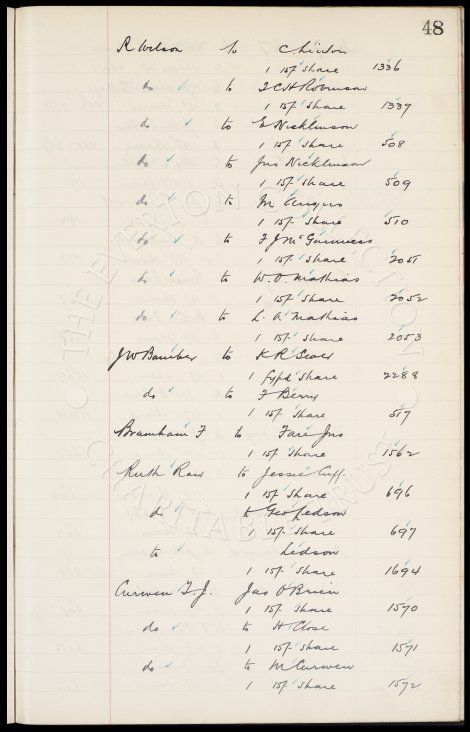 48
R Wilson to C. Linton
1 15/- Share 1336
do to J C H Robinson
1 15/- Share 1337
do to E Nicklinson
1 15/- Share 508
do to Jno Nicklinson
1 15/- Share 509
do to M Angus
1 15/- Share 510
do to F J McGuinness
1 15/- Share 2051
do to W. O. Mathias
1 15/- Share 2052
do to L. A. Mathias
1 15/- Share 2053
J W Bamber to K R
1 fypd Share 2288
do to F Berry
1 15/- Share 517
Bramham F to Jno
1 15/- Share 1562
Ruth Raw to Jessie Cuff
1 15/- Share 696
do to Geo Ledson
1 15/- Share 697
to Ledson
1 15/- Share 1694
Curwen T. J. Jas O'Brien
1 15/- Share 1570
do to H Close
1 15/- Share 1571
do to M Curwen
1 15/- Share 1572
THE EVERTON COLLECTION
CHARITABLE TRUST